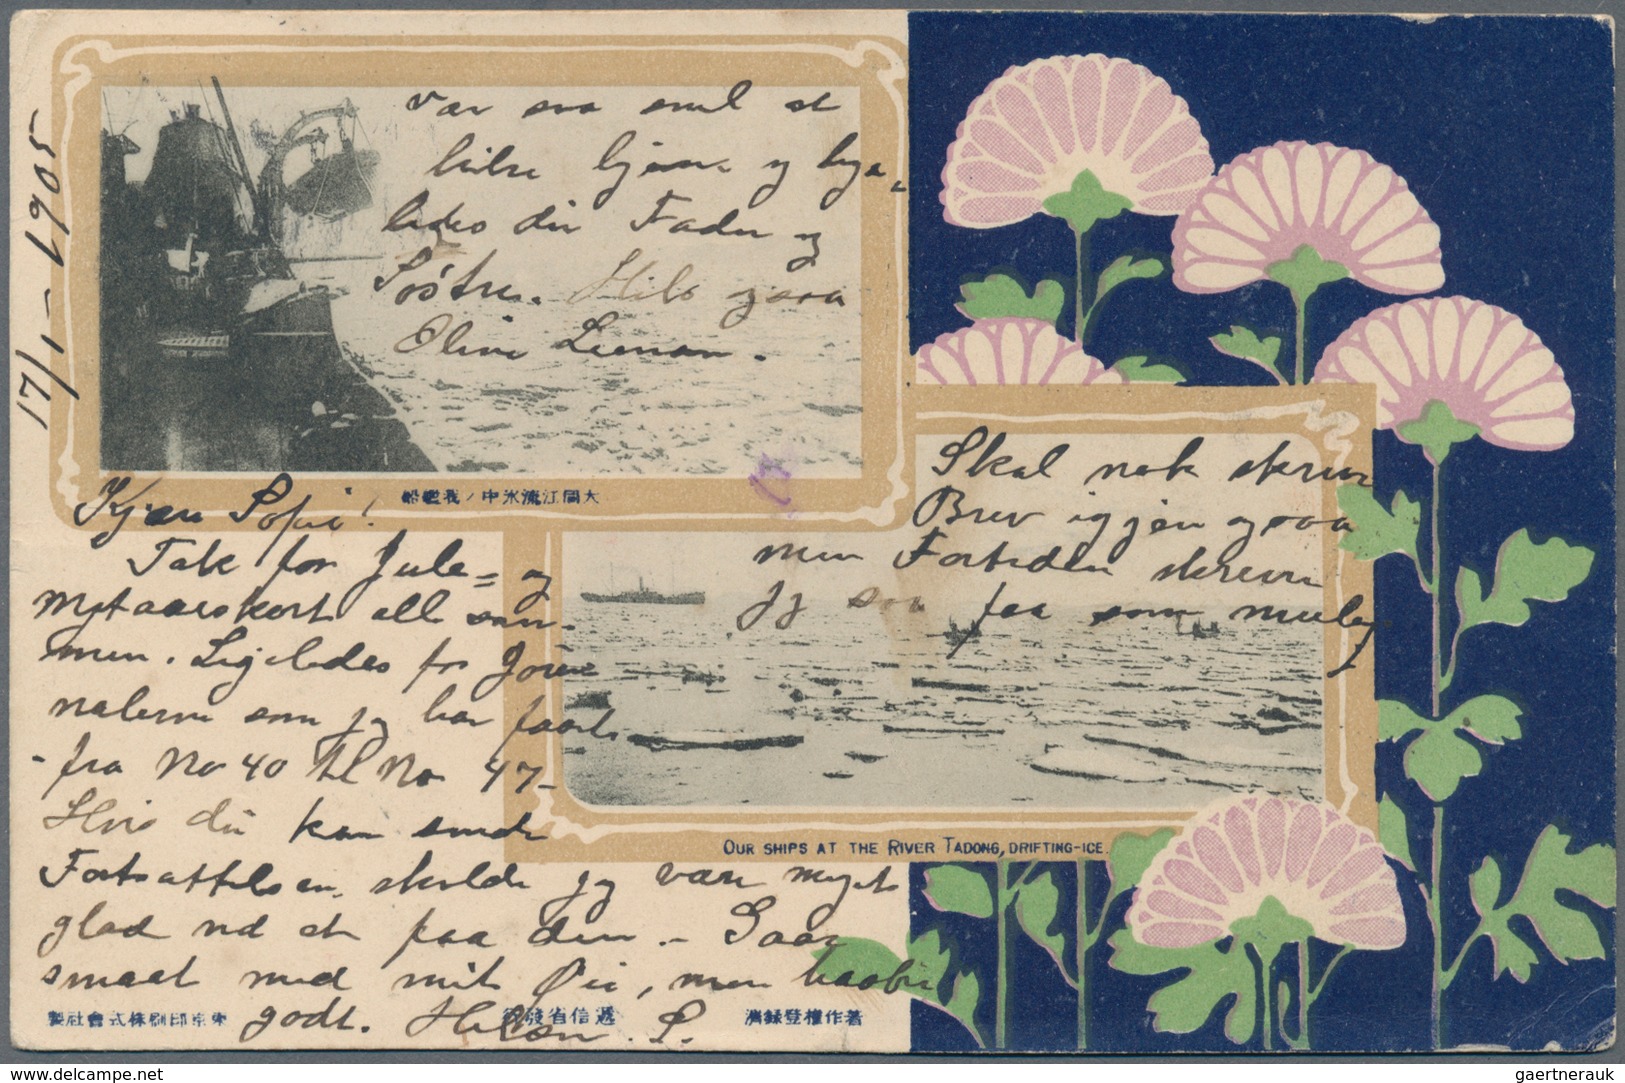 17/1 - 1905
Kjære Sofie!
Tak for Jule= og
Nytaarskort alle sam-
men. Ligeledes for Jour
nalerne som jg har faaet
- fra No 40 til No 47-
Hvis du kan sende
Fortsættelsen, skulde jg være meget
glad ved at faa den. - Gaar
smaat med mit Øie, men haaber
godt. Hilsen. S.
Vær saa snil at
hilse hjem og lige-
ledes din Fader og
Søstre. Hils ogsaa
Oline
Skal nok skrive
Brev igjen ogsaa
men Fortiden skriver
jg saa faa som mulig
大同江流氷中ノ我艦船
OUR SHIPS AT THE RIVER TADONG, DRIFTING-ICE.
東京印刷株式會社製
逓信省發行
著作權登録濟
delcampe.net
gaertnerauk